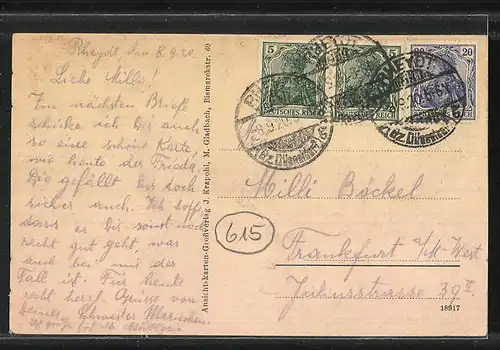 Rheydt den 8.9.20.
Liebe Milli!
Im nächsten Briefe
schicke ich Dir auch
so eine schöne Karte
wie heute der Frieda.
Die gefällt Dir doch
sicher auch. Ich hoffe
dass es Dir sonst noch
recht gut geht, was
auch bei mir der
Fall ist. Für heute
recht herzl. Grüsse von
Deiner Schwester
Ansichtskarten-Großverlag J. Krapohl, M. Gladbach, Bismarckstr. 69
5
DEUTSCHES REICH
5
REICH
20
20
RHEYDT
8.9.20
(Bz. Düsseldorf)
Milli Böckel
615
Frankfurt a/M-West
Juliusstrasse 39 II
18917